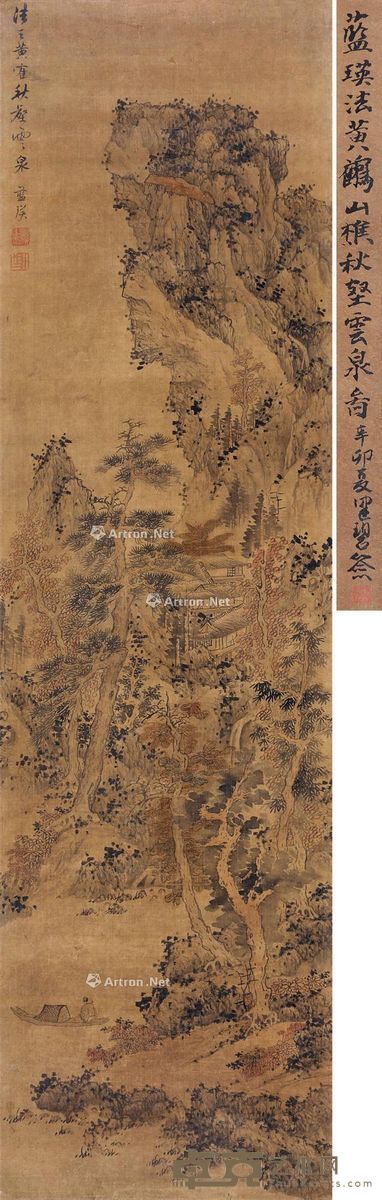 法王黄隺秋壑雲泉 藍瑛
藍瑛法黄鶴山樵秋壑雲泉圖 辛卯夏
Artron.Net
Artron.Net
Artron.Net